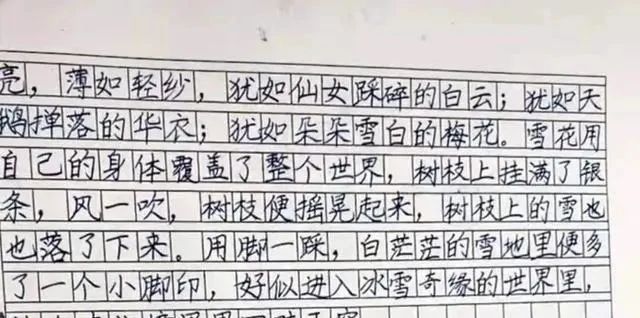 亮，薄如轻纱，犹如仙女踩碎的白云；犹如天
鹅掸落的华衣；犹如朵朵雪白的梅花。雪花用
自己的身体覆盖了整个世界，树枝上挂满了银
条，风一吹，树枝便摇晃起来，树枝上的雪也
也落了下来。用脚一踩，白茫茫的雪地里便多
了一个小脚印，好似进入冰雪奇缘的世界里，